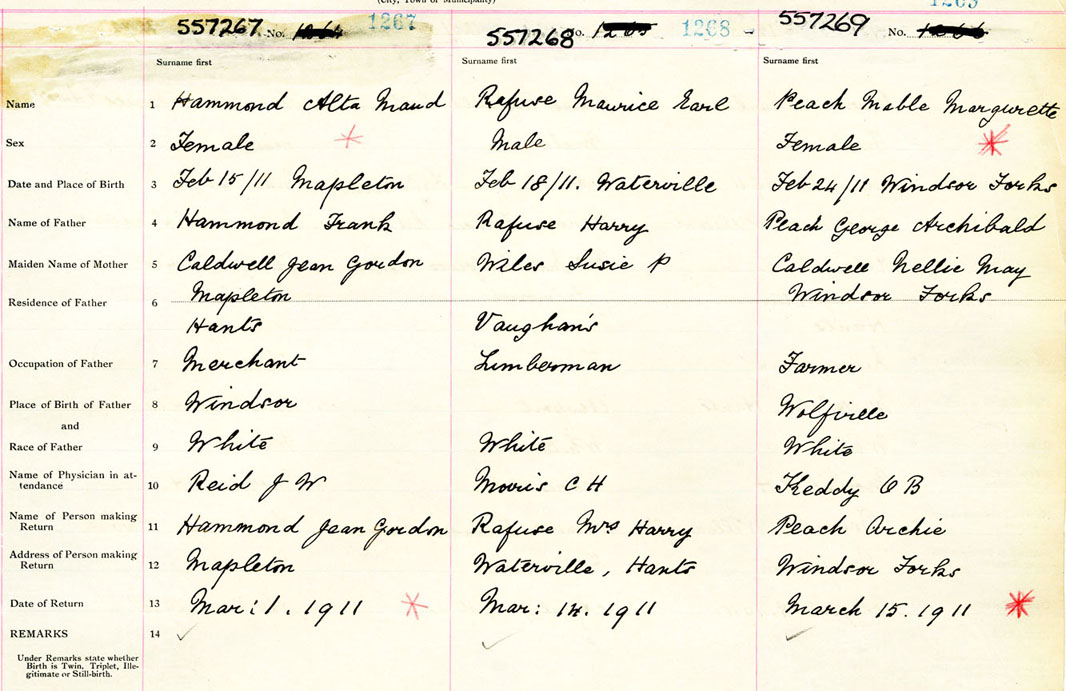 (City, Town or Municipality)
557267 No. 1267
557268 No. 1268
557269 No.
Surname first Surname first Surname first
Name 1 Hammond Alta Maud Rafuse Maurice Earl Peach Mable Margurette
Sex 2 Female Male Female
Date and Place of Birth 3 Feb 15/11 Mapleton Feb 18/11. Waterville Feb 24/11 Windsor Forks
Name of Father 4 Hammond Frank Rafuse Harry Peach George Archibald
Maiden Name of Mother 5 Caldwell Jean Gordon Wiles Susie P Caldwell Nellie May
Residence of Father 6 Mapleton Windsor Forks
Hants Vaughan's
Occupation of Father 7 Merchant Lumberman Farmer
Place of Birth of Father 8 Windsor Wolfville
and
Race of Father 9 White White White
Name of Physician in at-
tendance 10 Reid J W Morris C H Keddy O B
Name of Person making
Return 11 Hammond Jean Gordon Rafuse Mrs Harry Peach Archie
Address of Person making
Return 12 Mapleton Waterville, Hants Windsor Forks
Date of Return 13 Mar: 1. 1911 Mar: 14. 1911 March 15. 1911
REMARKS 14
Under Remarks state whether
Birth is Twin, Triplet, Ille-
gitimate or Still-birth.